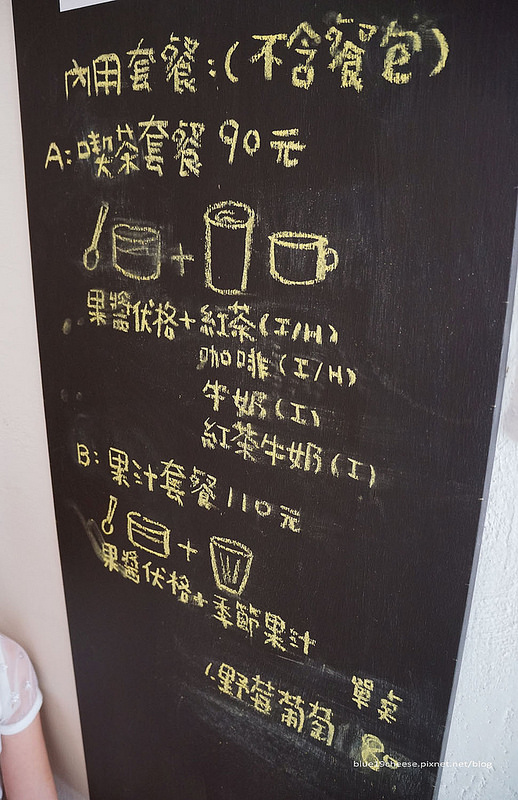 內用套餐:(不含餐包)
A:喫茶套餐 90元
果醬优格+紅茶(I/H)
咖啡(I/H)
牛奶(I)
紅茶牛奶(I)
B:果汁套餐 110元
果醬优格+季節果汁
單卖
1.野莓葡萄
blue29cheese.pixnet.net/blog